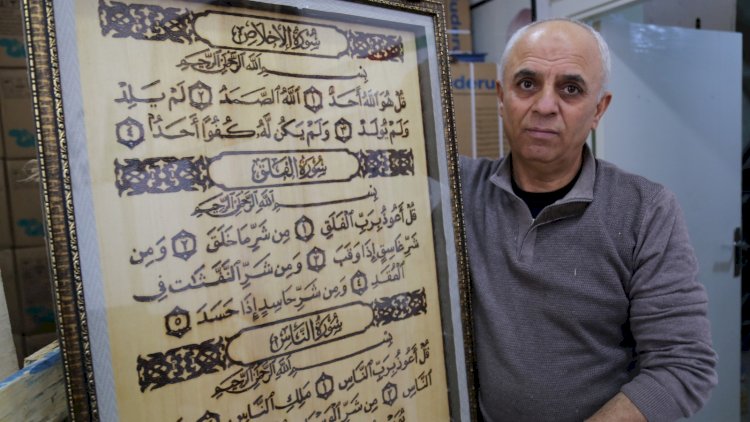 سُورَةُ الإِخْلَاصِ
بِسْمِ اللَّهِ الرَّحْمَٰنِ الرَّحِيمِ
قُلْ هُوَ اللَّهُ أَحَدٌ ١ اللَّهُ الصَّمَدُ ٢ لَمْ يَلِدْ
وَلَمْ يُولَدْ ٣ وَلَمْ يَكُن لَّهُ كُفُوًا أَحَدٌ ٤
سُورَةُ الفَلَقِ
بِسْمِ اللَّهِ الرَّحْمَٰنِ الرَّحِيمِ
قُلْ أَعُوذُ بِرَبِّ الْفَلَقِ ١ مِن شَرِّ مَا خَلَقَ ٢ وَمِن
شَرِّ غَاسِقٍ إِذَا وَقَبَ ٣ وَمِن شَرِّ النَّفَّٰثَٰتِ فِي
الْعُقَدِ ٤ وَمِن شَرِّ حَاسِدٍ إِذَا حَسَدَ ٥
سُورَةُ النَّاسِ
بِسْمِ اللَّهِ الرَّحْمَٰنِ الرَّحِيمِ
قُلْ أَعُوذُ بِرَبِّ النَّاسِ ١ مَلِكِ النَّاسِ
النَّاسِ ٣ مِن شَرِّ